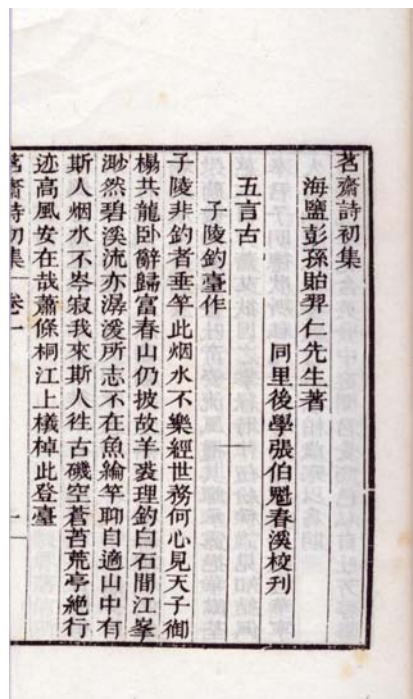 茗齋詩初集
海鹽彭孫貽羿仁先生著
同里後學張伯魁春溪校刋
五言古
子陵釣臺作
子陵非釣者垂竿此烟水不樂經世務何心見天子御
榻共龍卧辭歸富春山仍披故羊裘理釣白石間江峯
渺然碧溪流亦潺湲所志不在魚綸竿聊自適山中有
斯人烟水不岑寂我來斯人徃古磯空蒼苔荒亭絶行
迹高風安在哉蕭條桐江上檥棹此登臺
茗齋詩初集 卷一 一